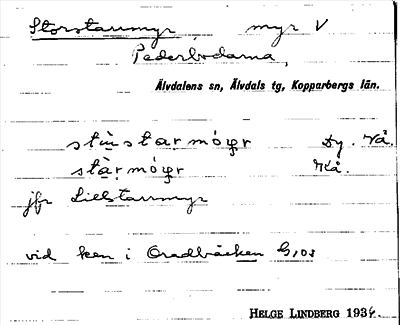 Storstarrmyr, myr V
Pederbodarna,
Älvdalens sn, Älvdals tg, Kopparbergs län.
stùstarmóyr Åy. Vå.
stàrmóyr Kå.
jfr Lillstarrmyr
vid ken i Oradbäcken G,os
HELGE LINDBERG 1934.